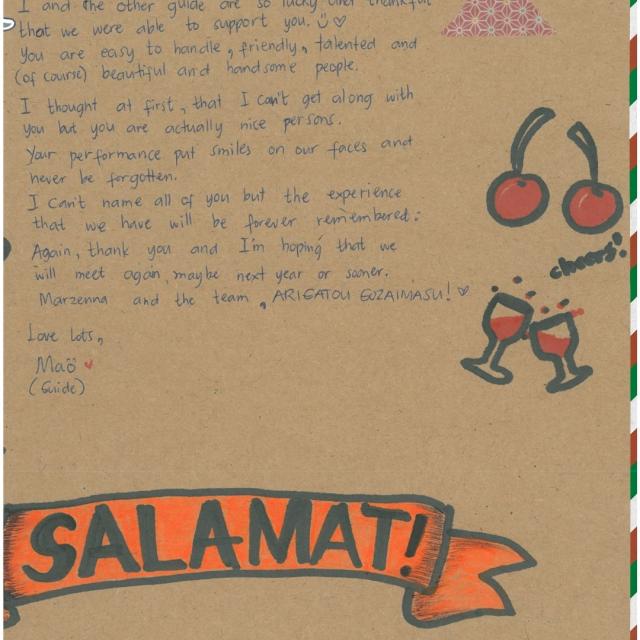 I and the other guide are so lucky and thankful
that we were able to support you. ♡
You are easy to handle, friendly, talented and
(of course) beautiful and handsome people.
I thought at first, that I can't get along with
you but you are actually nice persons.
Your performance put smiles on our faces and
never be forgotten.
I can't name all of you but the experience
that we have will be forever remembered.
Again, thank you and I'm hoping that we
will meet again, maybe next year or sooner.
Marzenna and the team, ARIGATOU GOZAIMASU! ♡
Love lots,
Maö
(Guide)
cheers!
SALAMAT!